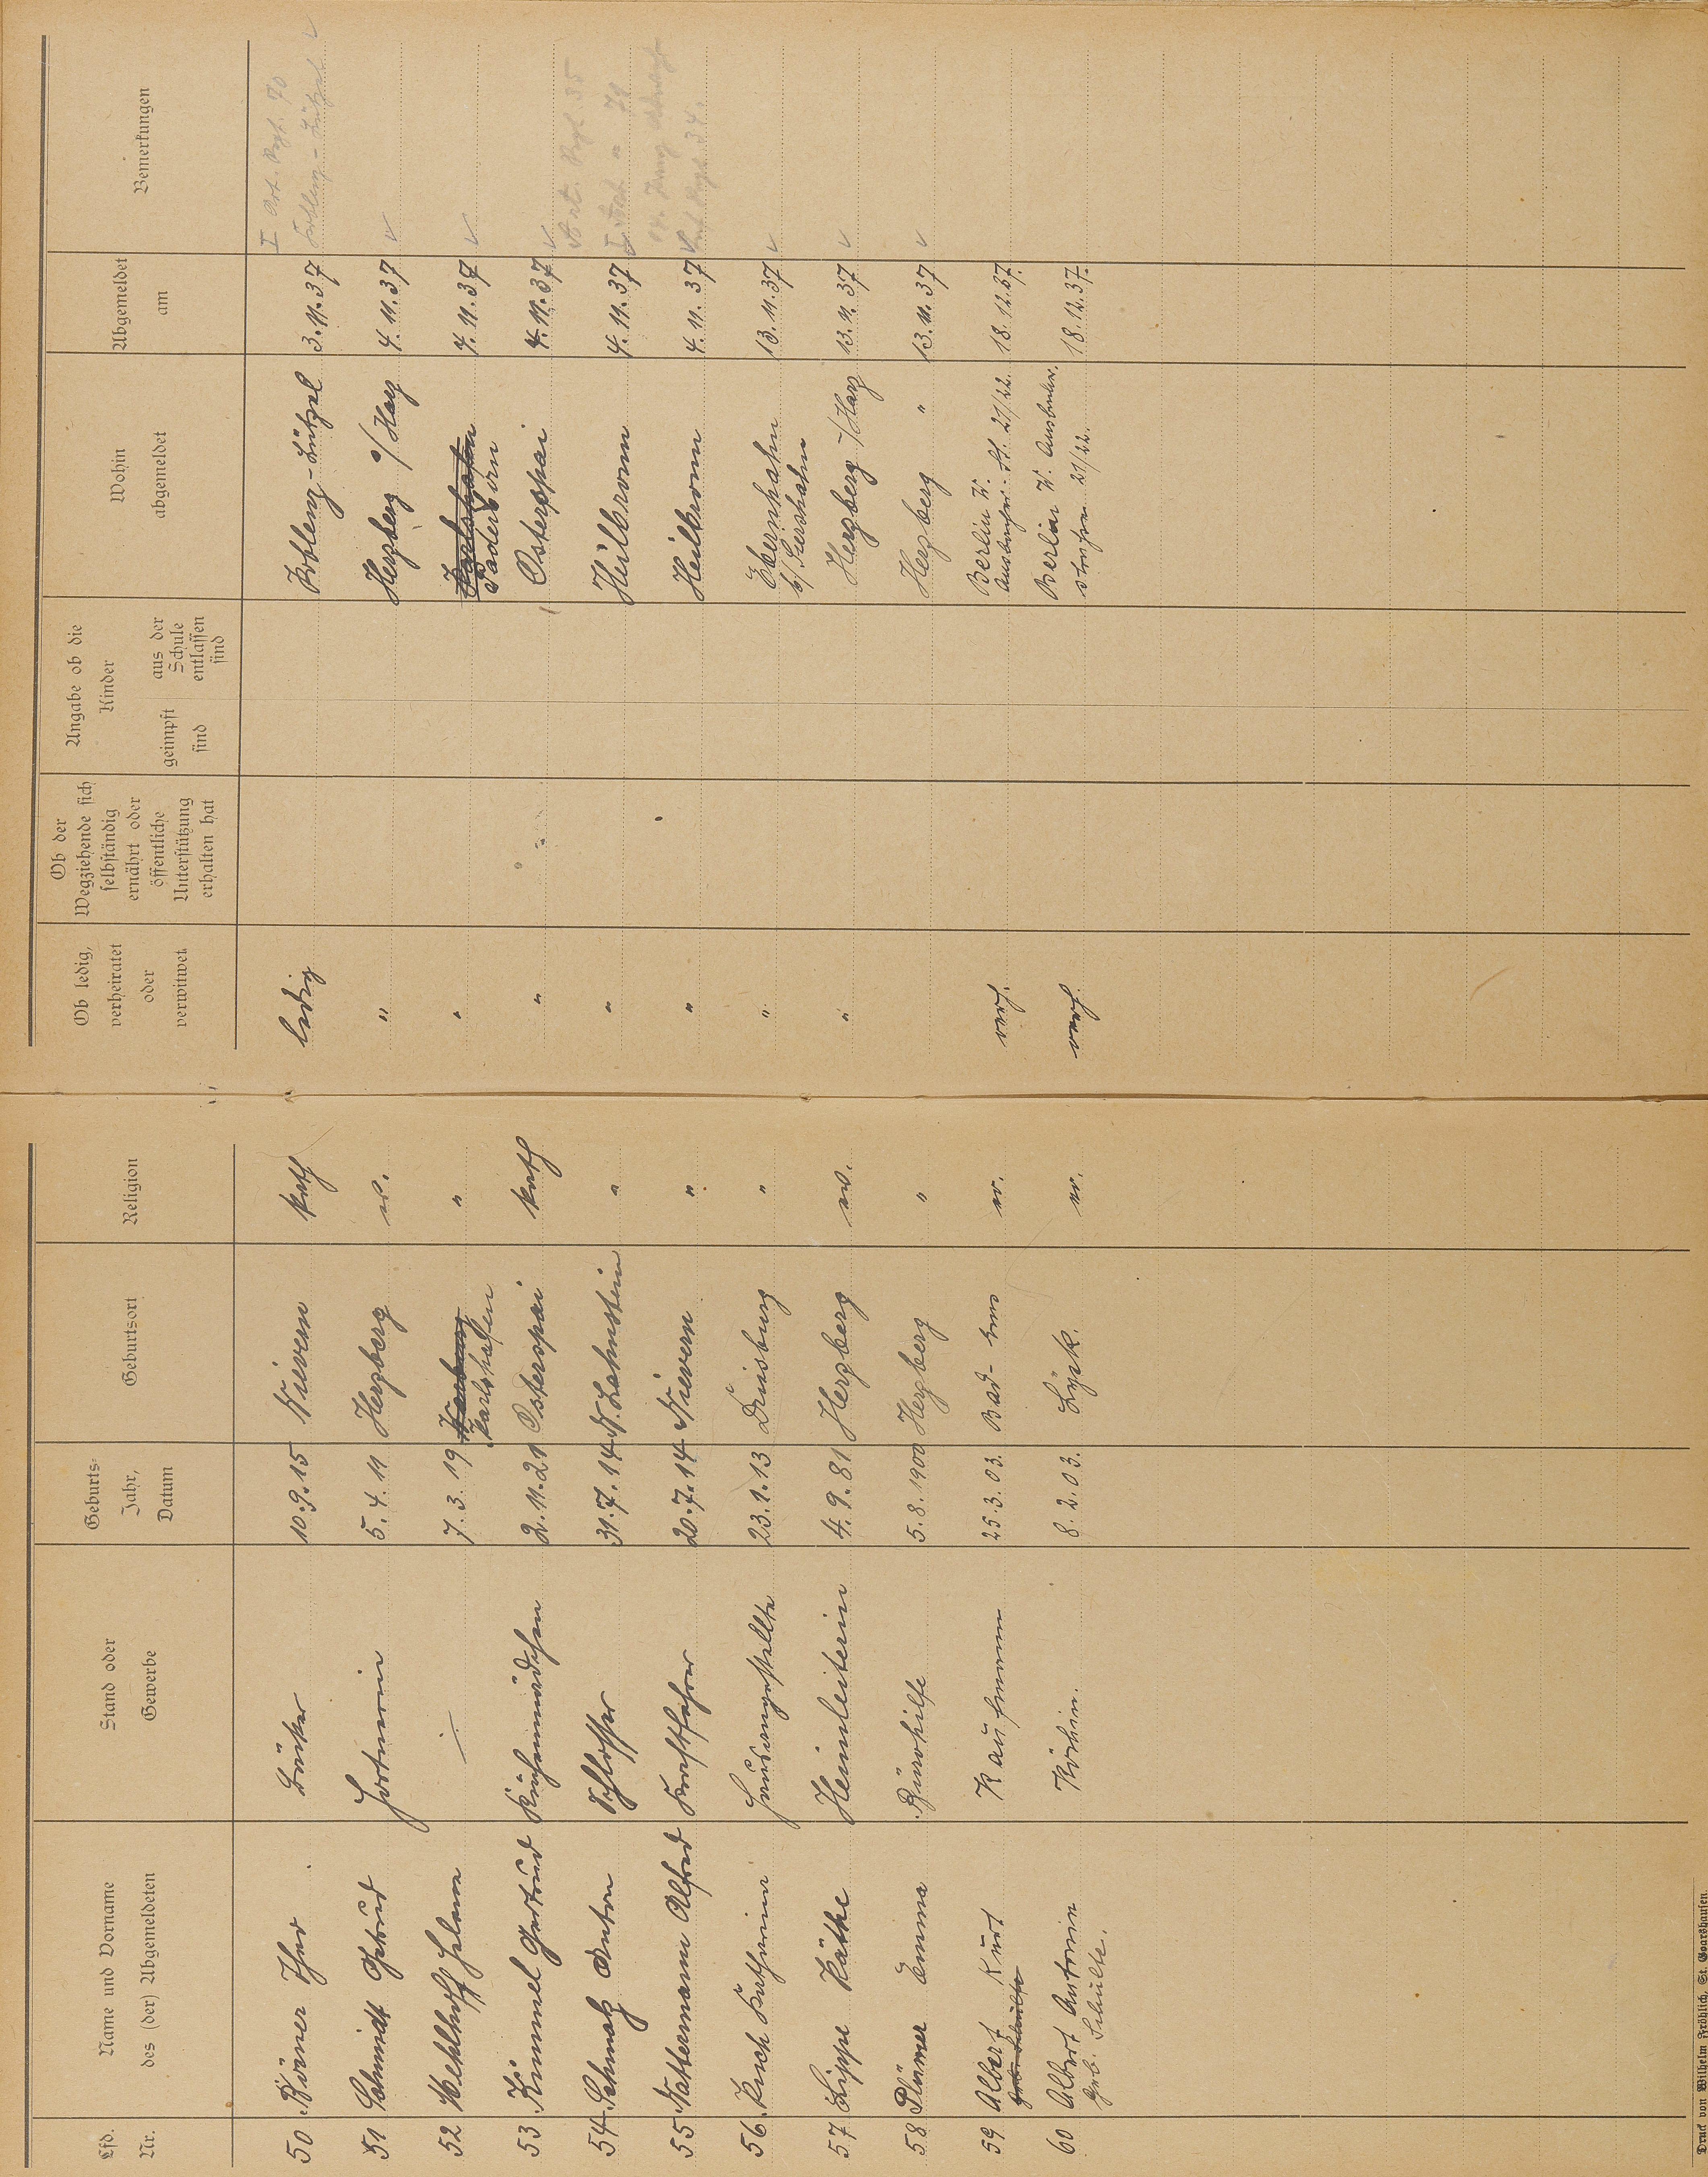 Lfd. Nr.
Name und Vorname des (der) Abgemeldeten
Stand oder Gewerbe
Geburts- Jahr, Datum
Geburtsort
Religion
Ob ledig, verheiratet oder verwitwet
Ob der Wegziehende sich selbständig ernährt oder öffentliche Unterstützung erhalten hat
Angabe ob die Kinder
geimpft sind
aus der Schule entlassen sind
Wohin abgemeldet
Abgemeldet am
Bemerkungen
50 Theo Bäcker 10.9.15 Nievern kath ledig Koblenz-Lützel 3.11.37 I Art. Regt. 70
Koblenz-Lützel
51 Schmidt Getrud Hortnerin 5.4.11 Herzberg ev. " Herzberg a/Harz 4.11.37
52 Helene ./. 7.3.19 Karlshafen " " Karlshafen Paderborn 4.11.37
53 Kimmel Gertrud Küchenmädchen 2.11.21 Osterspai kath " Osterspai 4.11.37
54 Schmatz Anton Schlosser 31.7.14 N. Lahnstein " " Heilbronn 4.11.37
55 Nattermann Alfred Kraftfahrer 20.7.14 Nievern " " Heilbronn 4.11.37
56 Katharina Hausangestellte 23.1.13 Duisburg " " Ebernhahn b/ Siershahn 13.11.37
57 Lippe Käthe Heimleiterin 4.9.81 Herzberg ev. " Herzberg /Harz 13.11.37
58 Plümer Emma Bürohilfe 5.8.1900 Herzberg " Herzberg " 13.11.37
59 Albert Kurt Kaufmann 25.3.03. Bad-Ems ev. verh. Berlin W. Ansbacher-St. 21/22. 18.12.37.
geb. Schulte
60 Albert Antonie Köchin. 8.2.03. Lyck. ev. verh. Berlin W. Ansbacher. strasse 21/22. 18.12.37.
geb. Schulte.
Druck von Wilhelm Fröhlich, St. Goarshausen.